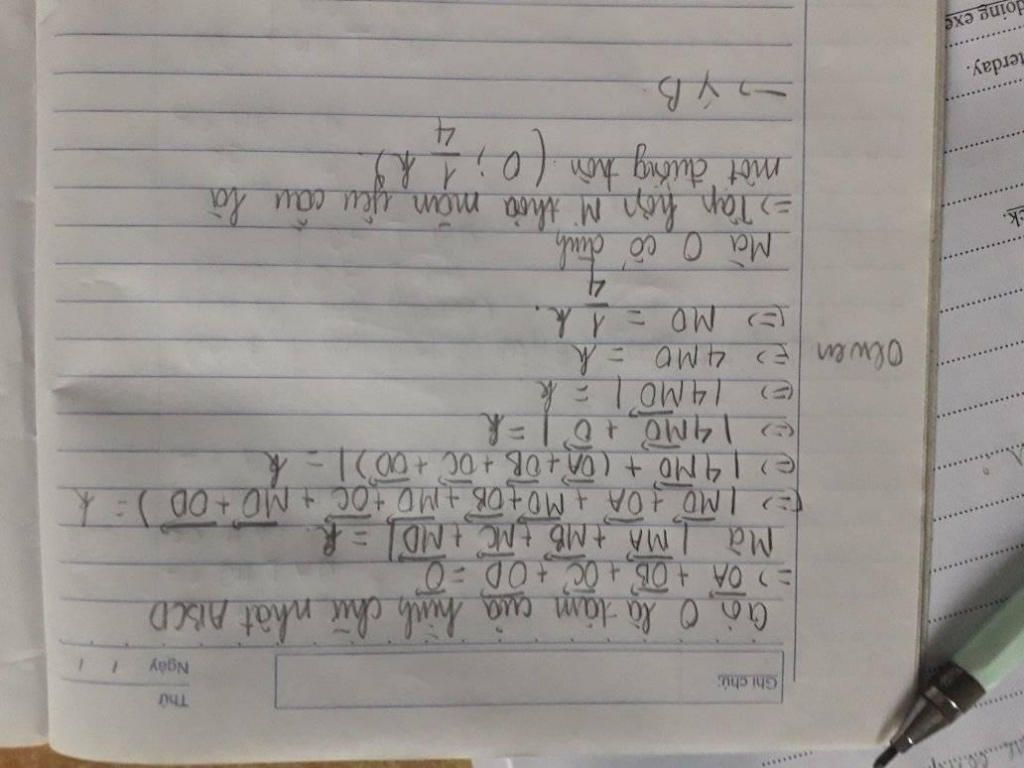 Thứ
Ngày / /
Ghi chú:
Gọi O là tâm của hình chữ nhật ABCD
=> OA + OB + OC + OD = O
Mà |MA + MB + MC + MD| = k
(=> |MO + OA + MO + OB + MO + OC + MO + OD) = k
(=> |4MO + (OA + OB + OC + OD)| = k
(=> |4MO + O| = k
(=> |4MO| = k
(=> 4MO = k
(=> MO = 1/4 k.
Mà O cố định
=> Tập hợp M thỏa mãn yêu cầu là
một đường tròn (O; 1/4 k)
=> Ý B.
Olwen
doing exe
terday.
k.